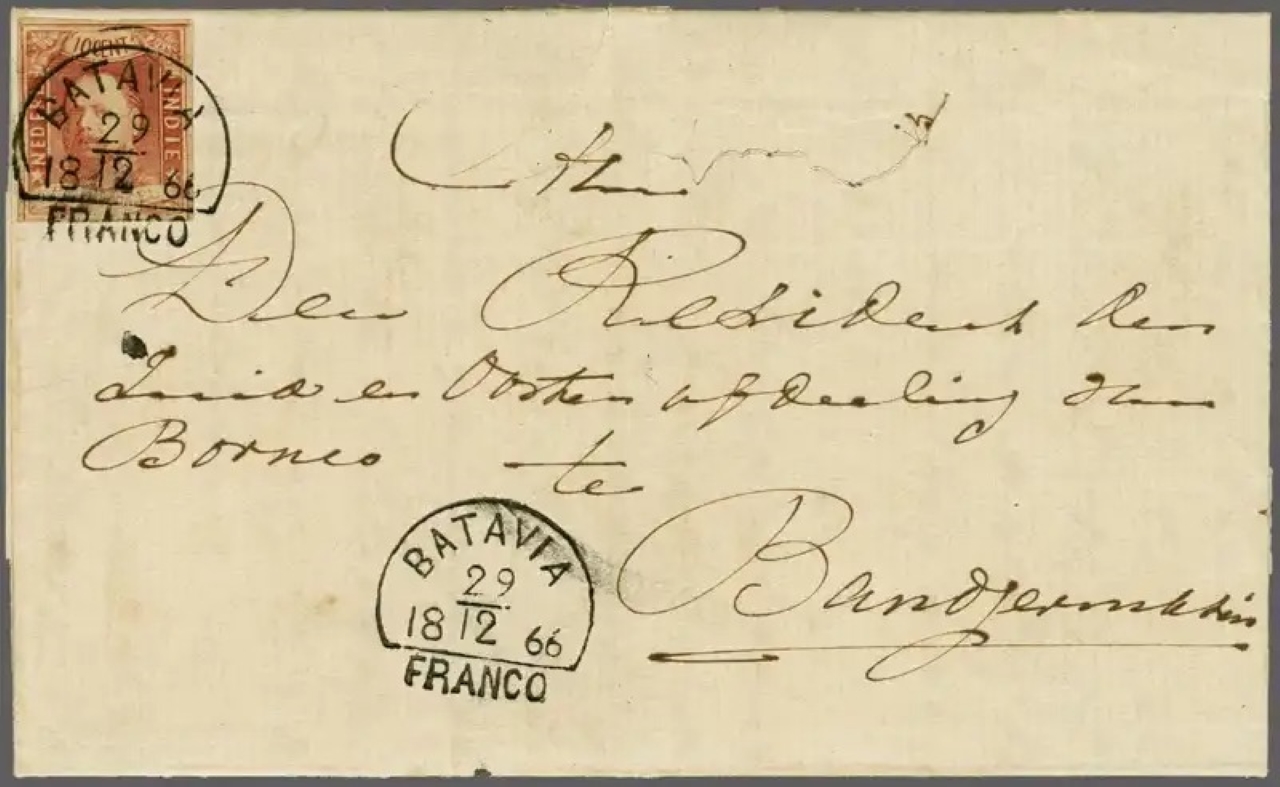 10 CENT
NEDERL
INDIE
BATAVIA
29
18 12 66
FRANCO
Aan
Den Resident der
Zuid en Ooster afdeeling van
Borneo te
Bandjermassin
BATAVIA
29
18 12 66
FRANCO